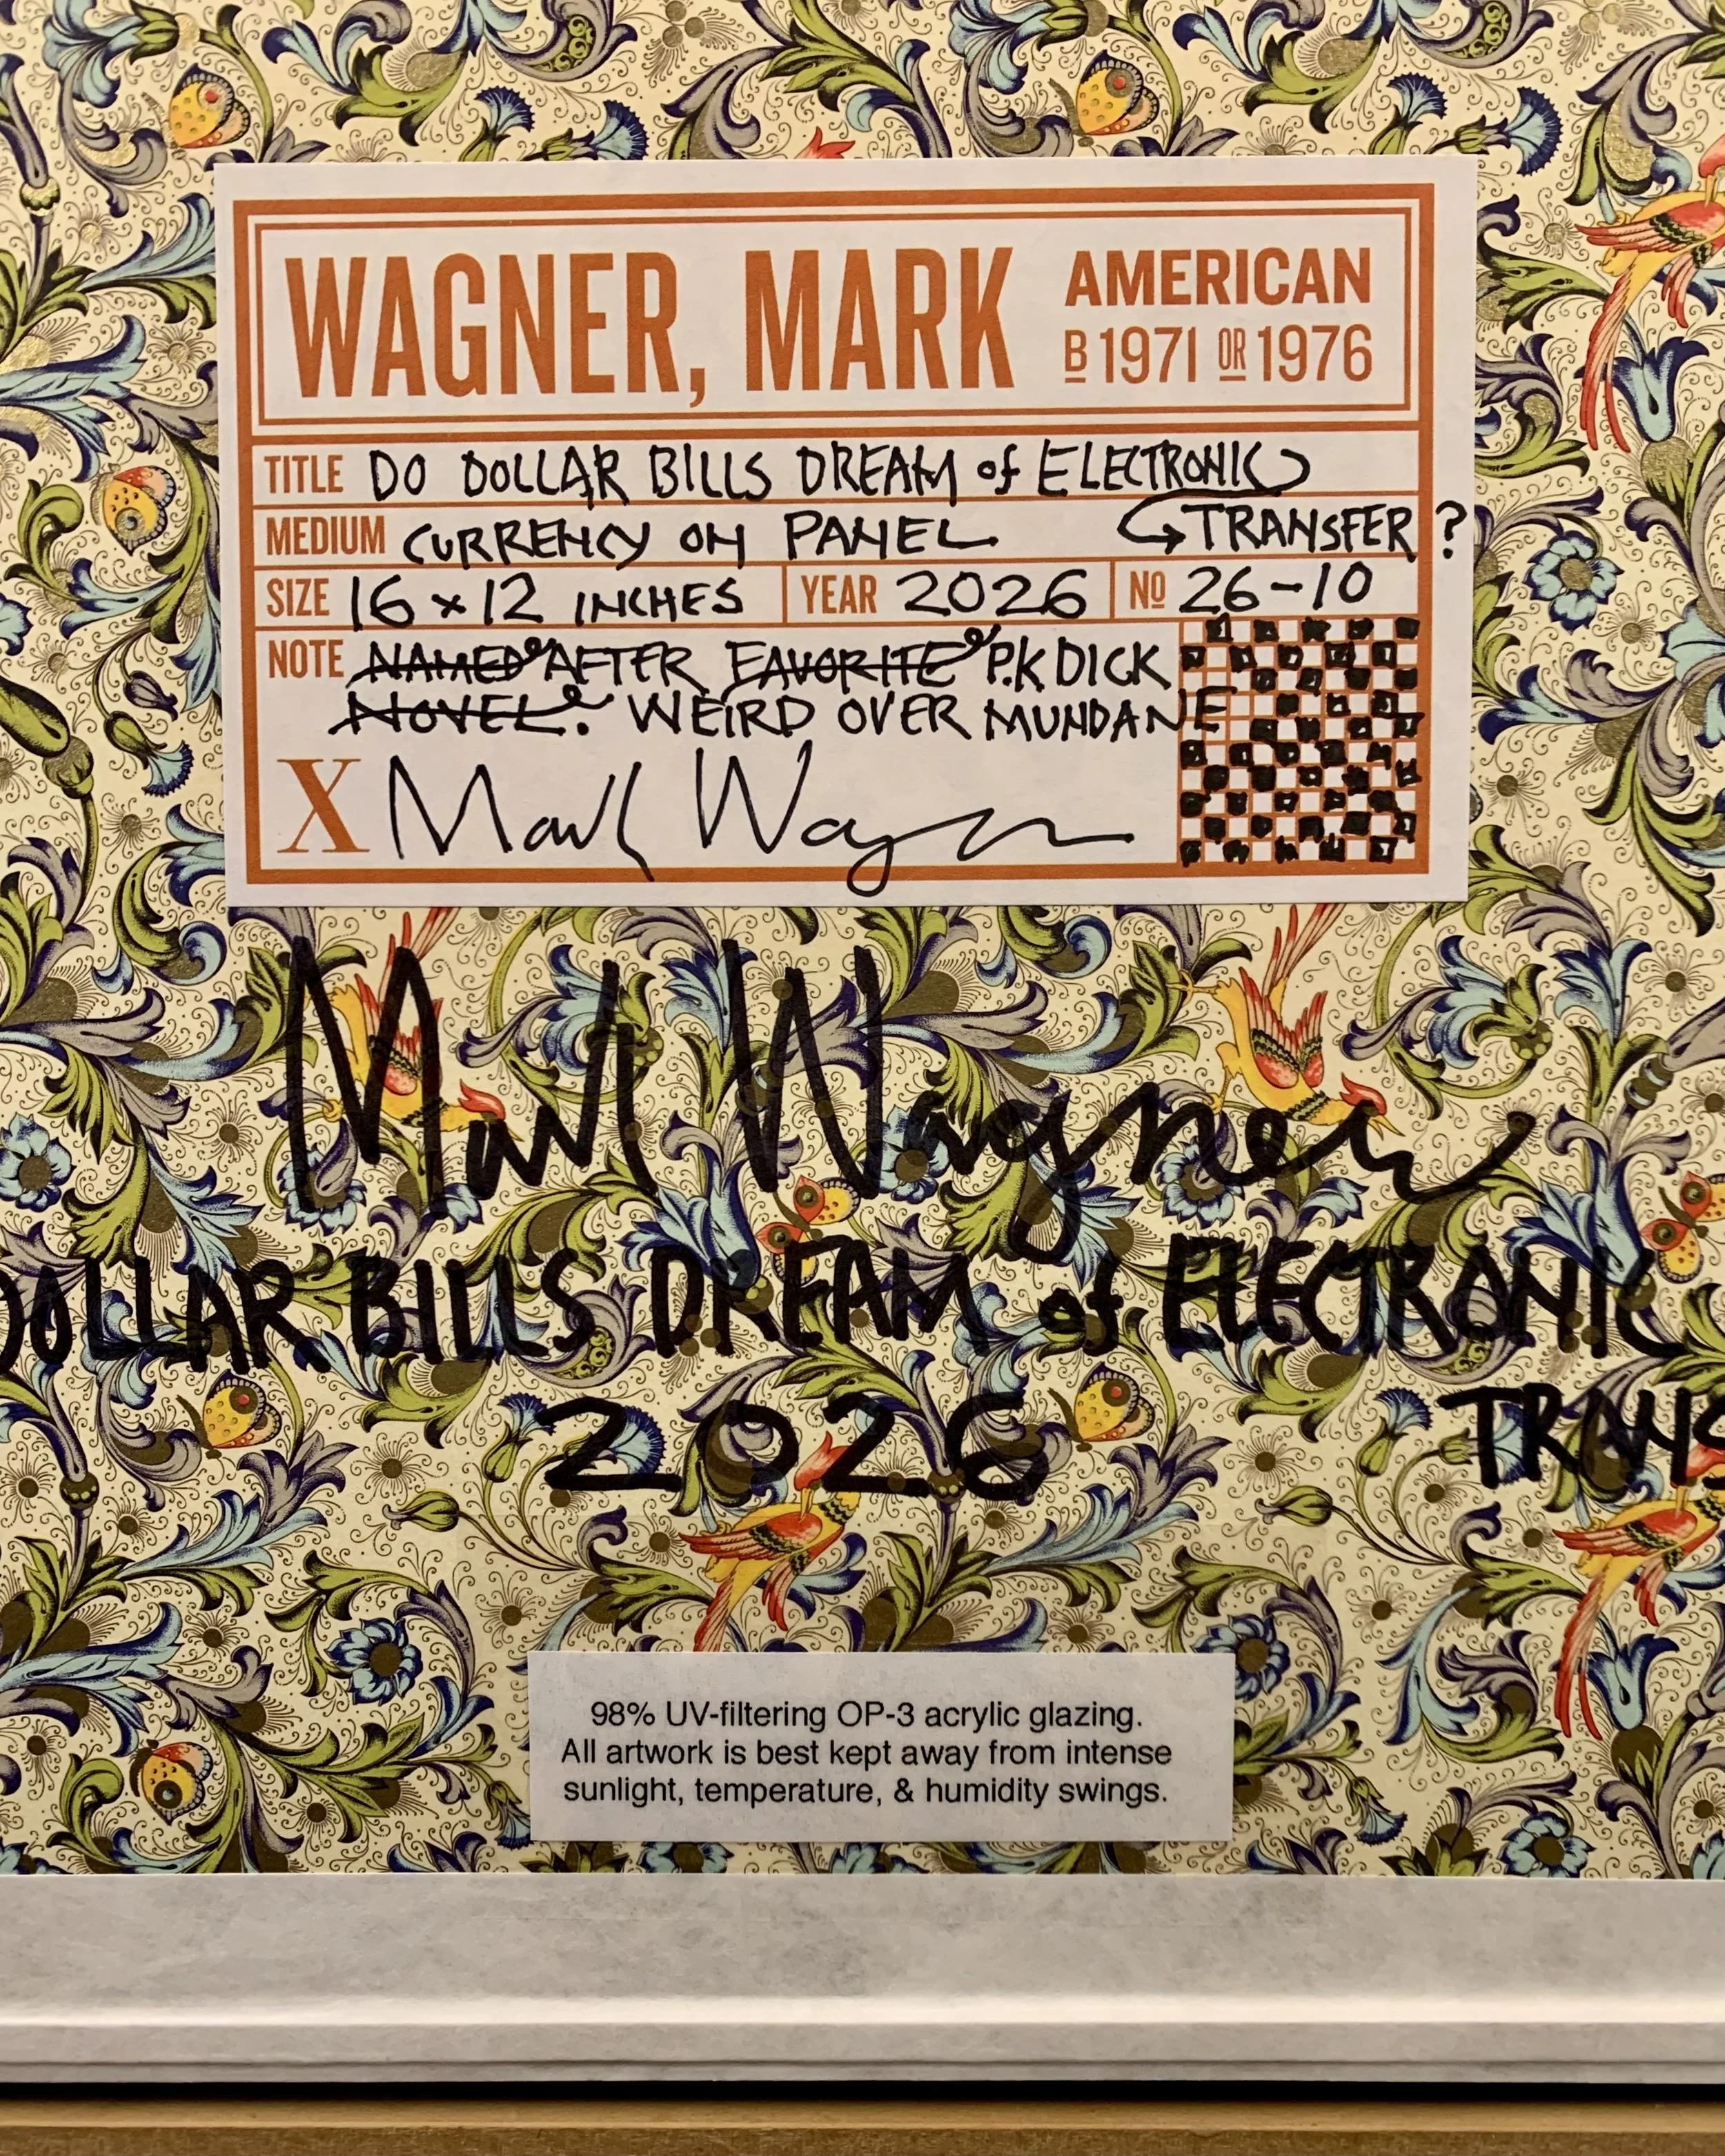 WAGNER, MARK
AMERICAN
B 1971 OR 1976
TITLE DO DOLLAR BILLS DREAM of ELECTRONIC
TRANSFER?
MEDIUM CURRENCY ON PANEL
SIZE 16 x 12 INCHES YEAR 2026 NO 26-10
NOTE NAMED AFTER FAVORITE P.K DICK
NOVEL. WEIRD OVER MUNDANE
X Mark Wagner
Mark Wagner
DOLLAR BILLS DREAM of ELECTRONIC
2026 TRANS
98% UV-filtering OP-3 acrylic glazing.
All artwork is best kept away from intense
sunlight, temperature, & humidity swings.